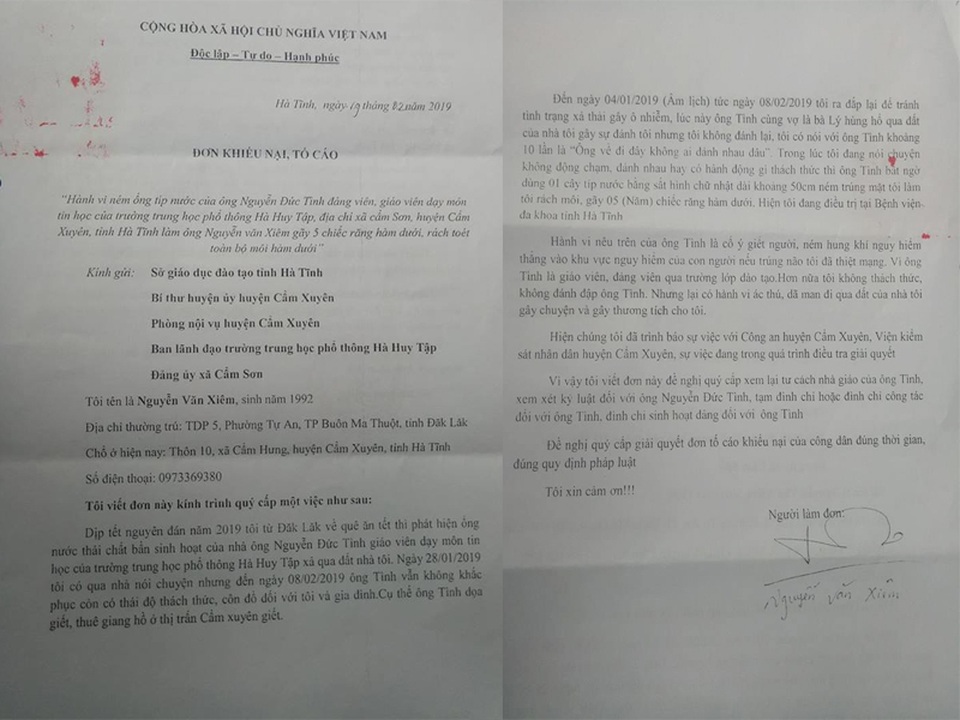 CỘNG HÒA XÃ HỘI CHỦ NGHĨA VIỆT NAM
Độc lập – Tự do – Hạnh phúc
Hà Tĩnh, ngày 19 tháng 02 năm 2019
ĐƠN KHIẾU NẠI, TỐ CÁO
"Hành vi ném ống típ nước của ông Nguyễn Đức Tình đảng viên, giáo viên dạy môn
tin học của trường trung học phổ thông Hà Huy Tập, địa chỉ xã cẩm Sơn, huyện Cẩm
Xuyên, tỉnh Hà Tĩnh làm ông Nguyễn văn Xiêm gãy 5 chiếc răng hàm dưới, rách toét
toàn bộ môi hàm dưới"
Kính gửi: Sở giáo dục đào tạo tỉnh Hà Tĩnh
Bí thư huyện ủy huyện Cẩm Xuyên
Phòng nội vụ huyện Cẩm Xuyên
Ban lãnh đạo trường trung học phổ thông Hà Huy Tập
Đảng ủy xã Cẩm Sơn
Tôi tên là Nguyễn Văn Xiêm, sinh năm 1992
Địa chỉ thường trú: TDP 5, Phường Tự An, TP Buôn Ma Thuột, tỉnh Đăk Lăk
Chỗ ở hiện nay: Thôn 10, xã Cẩm Hưng, huyện Cẩm Xuyên, tỉnh Hà Tĩnh
Số điện thoại: 0973369380
Tôi viết đơn này kính trình quý cấp một việc như sau:
Dịp tết nguyên đán năm 2019 tôi từ Đăk Lăk về quê ăn tết thì phát hiện ống
nước thải chất bẩn sinh hoạt của nhà ông Nguyễn Đức Tình giáo viên dạy môn tin
học của trường trung học phổ thông Hà Huy Tập xả qua đất nhà tôi. Ngày 28/01/2019
tôi có qua nhà nói chuyện nhưng đến ngày 08/02/2019 ông Tình vẫn không khắc
phục còn có thái độ thách thức, côn đồ đối với tôi và gia đình.Cụ thể ông Tình dọa
giết, thuê giang hồ ở thị trấn Cẩm xuyên giết.
Đến ngày 04/01/2019 (Âm lịch) tức ngày 08/02/2019 tôi ra đắp lại để tránh
tình trạng xả thải gây ô nhiễm, lúc này ông Tình cùng vợ là bà Lý hùng hổ qua đất
của nhà tôi gây sự đánh tôi nhưng tôi không đánh lại, tôi có nói với ông Tình khoảng
10 lần là "Ông về đi đây không ai đánh nhau đâu". Trong lúc tôi đang nói chuyện
không động chạm, đánh nhau hay có hành động gì thách thức thì ông Tình bất ngờ
dùng 01 cây típ nước bằng sắt hình chữ nhật dài khoảng 50cm ném trúng mặt tôi làm
tôi rách môi, gãy 05 (Năm) chiếc răng hàm dưới. Hiện tôi đang điều trị tại Bệnh viện
đa khoa tỉnh Hà Tĩnh
Hành vi nêu trên của ông Tình là cố ý giết người, ném hung khí nguy hiểm
thẳng vào khu vực nguy hiểm của con người nếu trúng não tôi đã thiệt mạng. Vì ông
Tình là giáo viên, đảng viên qua trường lớp đào tạo.Hơn nữa tôi không thách thức,
không đánh đập ông Tình. Nhưng lại có hành vi ác thú, dã man đi qua đất của nhà tôi
gây chuyện và gây thương tích cho tôi.
Hiện chúng tôi đã trình báo sự việc với Công an huyện Cẩm Xuyên, Viện kiểm
sát nhân dân huyện Cẩm Xuyên, sự việc đang trong quá trình điều tra giải quyết
Vì vậy tôi viết đơn này đề nghị quý cấp xem lại tư cách nhà giáo của ông Tình,
xem xét kỷ luật đối với ông Nguyễn Đức Tình, tạm đình chỉ hoặc đình chỉ công tác
đối với ông Tình, đình chỉ sinh hoạt đảng đối với ông Tình
Đề nghị quý cấp giải quyết đơn tố cáo khiếu nại của công dân đúng thời gian,
đúng quy định pháp luật
Tôi xin cảm ơn!!!
Người làm đơn:
Nguyễn Văn Xiêm